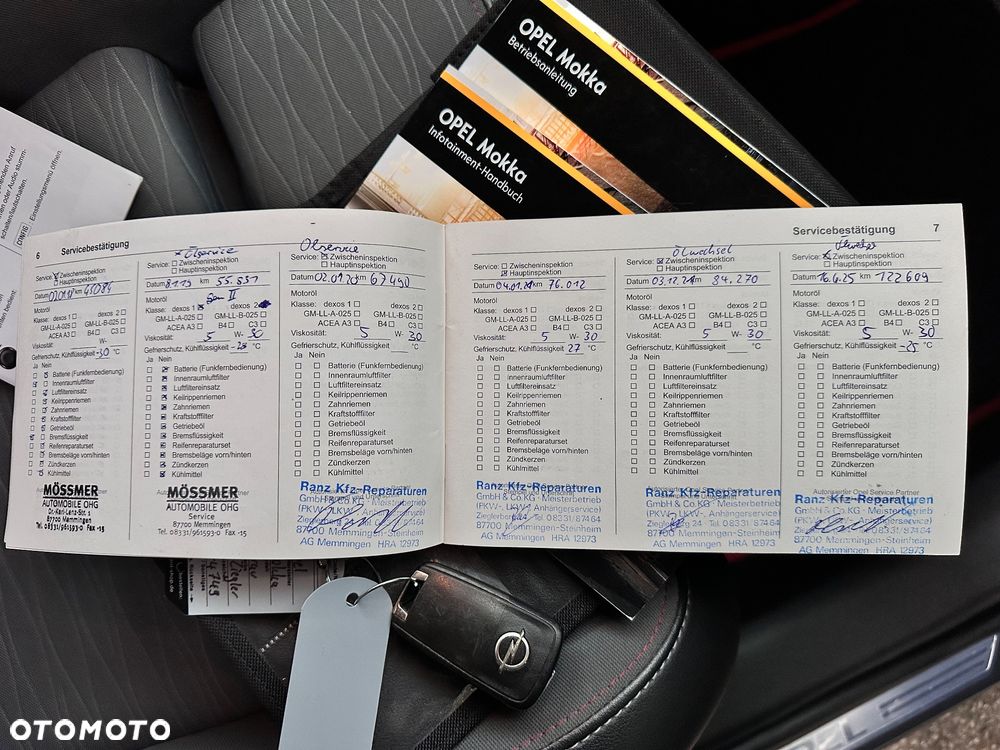 OPEL Mokka
Betriebsanleitung
OPEL Mokka
Infotainment-Handbuch
CONFIG
Einstellungsmenü öffnen.
6
Servicebestätigung
Service: Zwischeninspektion
Hauptinspektion
Datum km 45084
Motoröl
Klasse: dexos 1 dexos 2
GM-LL-A-025 GM-LL-B-025
ACEA A3 B4 C3
Viskosität: W-
Gefrierschutz, Kühlflüssigkeit -30 °C
Ja Nein
Batterie (Funkfernbedienung)
Innenraumluftfilter
Luftfiltereinsatz
Keilrippenriemen
Zahnriemen
Kraftstofffilter
Getriebeöl
Bremsflüssigkeit
Reifenreparaturset
Bremsbeläge vorn/hinten
Zündkerzen
Kühlmittel
MÖSSMER
AUTOMOBILE OHG
Dr.-Karl-Lenz-Str. 1
87700 Memmingen
Tel. 08331/961593-0 Fax -15
Ölservice
Service: Zwischeninspektion
Hauptinspektion
Datum 8.1.19 km 55.551
Motoröl Gen II
Klasse: dexos 1 dexos 2
GM-LL-A-025 GM-LL-B-025
ACEA A3 B4 C3
Viskosität: 5 W- 30
Gefrierschutz, Kühlflüssigkeit -25 °C
Ja Nein
Batterie (Funkfernbedienung)
Innenraumluftfilter
Luftfiltereinsatz
Keilrippenriemen
Zahnriemen
Kraftstofffilter
Getriebeöl
Bremsflüssigkeit
Reifenreparaturset
Bremsbeläge vorn/hinten
Zündkerzen
Kühlmittel
MÖSSMER
AUTOMOBILE OHG
Service
87700 Memmingen
Tel. 08331/961593-0 Fax -15
Ölservice
Service: Zwischeninspektion
Hauptinspektion
Datum 02.01.20 km 67490
Motoröl
Klasse: dexos 1 dexos 2
GM-LL-A-025 GM-LL-B-025
ACEA A3 B4 C3
Viskosität: 5 W- 30
Gefrierschutz, Kühlflüssigkeit °C
Ja Nein
Batterie (Funkfernbedienung)
Innenraumluftfilter
Luftfiltereinsatz
Keilrippenriemen
Zahnriemen
Kraftstofffilter
Getriebeöl
Bremsflüssigkeit
Reifenreparaturset
Bremsbeläge vorn/hinten
Zündkerzen
Kühlmittel
Ranz Kfz-Reparaturen
GmbH & Co.KG · Meisterbetrieb
(PKW-, LKW-, Anhängerservice)
87700 Memmingen-Steinheim
AG Memmingen HRA 12973
Servicebestätigung
7
Service: Zwischeninspektion
Hauptinspektion
Datum 04.01.21 km 76.012
Motoröl
Klasse: dexos 1 dexos 2
GM-LL-A-025 GM-LL-B-025
ACEA A3 B4 C3
Viskosität: 5 W- 30
Gefrierschutz, Kühlflüssigkeit 27 °C
Ja Nein
Batterie (Funkfernbedienung)
Innenraumluftfilter
Luftfiltereinsatz
Keilrippenriemen
Zahnriemen
Kraftstofffilter
Getriebeöl
Bremsflüssigkeit
Reifenreparaturset
Bremsbeläge vorn/hinten
Zündkerzen
Kühlmittel
Ranz Kfz-Reparaturen
GmbH & Co.KG · Meisterbetrieb
(PKW-, LKW-, Anhängerservice)
Tel. 08331/87464
87700 Memmingen-Steinheim
AG Memmingen HRA 12973
Ölwechsel
Service: Zwischeninspektion
Hauptinspektion
Datum 03.12.21 km 84.270
Motoröl
Klasse: dexos 1 dexos 2
GM-LL-A-025 GM-LL-B-025
ACEA A3 B4 C3
Viskosität: 5 W- 30
Gefrierschutz, Kühlflüssigkeit °C
Ja Nein
Batterie (Funkfernbedienung)
Innenraumluftfilter
Luftfiltereinsatz
Keilrippenriemen
Zahnriemen
Kraftstofffilter
Getriebeöl
Bremsflüssigkeit
Reifenreparaturset
Bremsbeläge vorn/hinten
Zündkerzen
Kühlmittel
Ranz Kfz-Reparaturen
GmbH & Co.KG · Meisterbetrieb
(PKW-, LKW-, Anhängerservice)
Tel. 08331/87464
87700 Memmingen-Steinheim
AG Memmingen HRA 12973
Service: Zwischeninspektion
Hauptinspektion
Datum 16.6.25 km 122609
Motoröl
Klasse: dexos 1 dexos 2
GM-LL-A-025 GM-LL-B-025
ACEA A3 B4 C3
Viskosität: 5 W- 30
Gefrierschutz, Kühlflüssigkeit -25 °C
Ja Nein
Batterie (Funkfernbedienung)
Innenraumluftfilter
Luftfiltereinsatz
Keilrippenriemen
Zahnriemen
Kraftstofffilter
Getriebeöl
Bremsflüssigkeit
Reifenreparaturset
Bremsbeläge vorn/hinten
Zündkerzen
Kühlmittel
Autorisierter Opel Service Partner
Ranz Kfz-Reparaturen
GmbH & Co.KG · Meisterbetrieb
(PKW-, LKW-, Anhängerservice)
87700 Memmingen-Steinheim
AG Memmingen HRA 12973
OTOMOTO